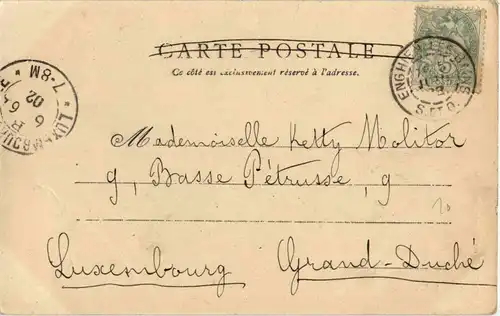 CARTE POSTALE
Ce côté est exclusivement réservé à l'adresse.
ENGHIEN-LES-BAINS
S. ET O.
LUXEMBOURG
7-8M
02
6
Mademoiselle Ketty Molitor
9, Basse Pétrusse, 9
10
Luxembourg Grand-Duché